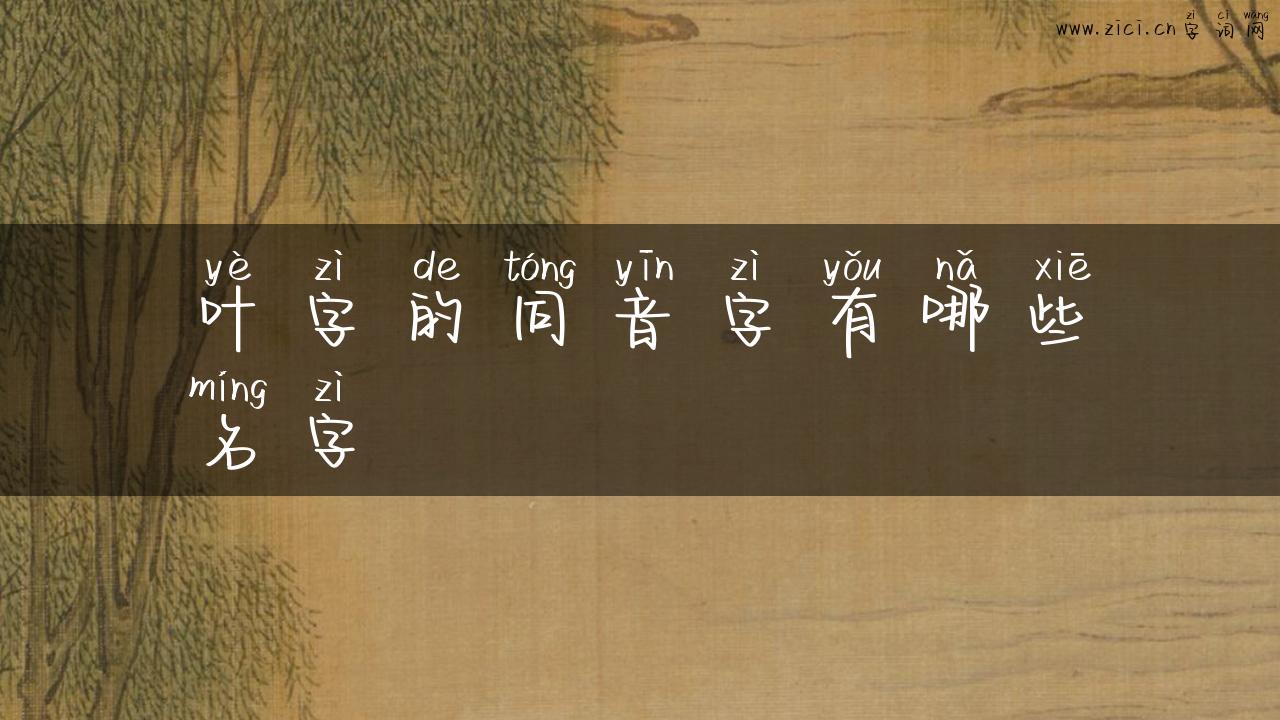 zì cí wǎng
www.zici.cn 字词网
yè zì de tóng yīn zì yǒu nǎ xiē
叶字的同音字有哪些
míng zì
名字